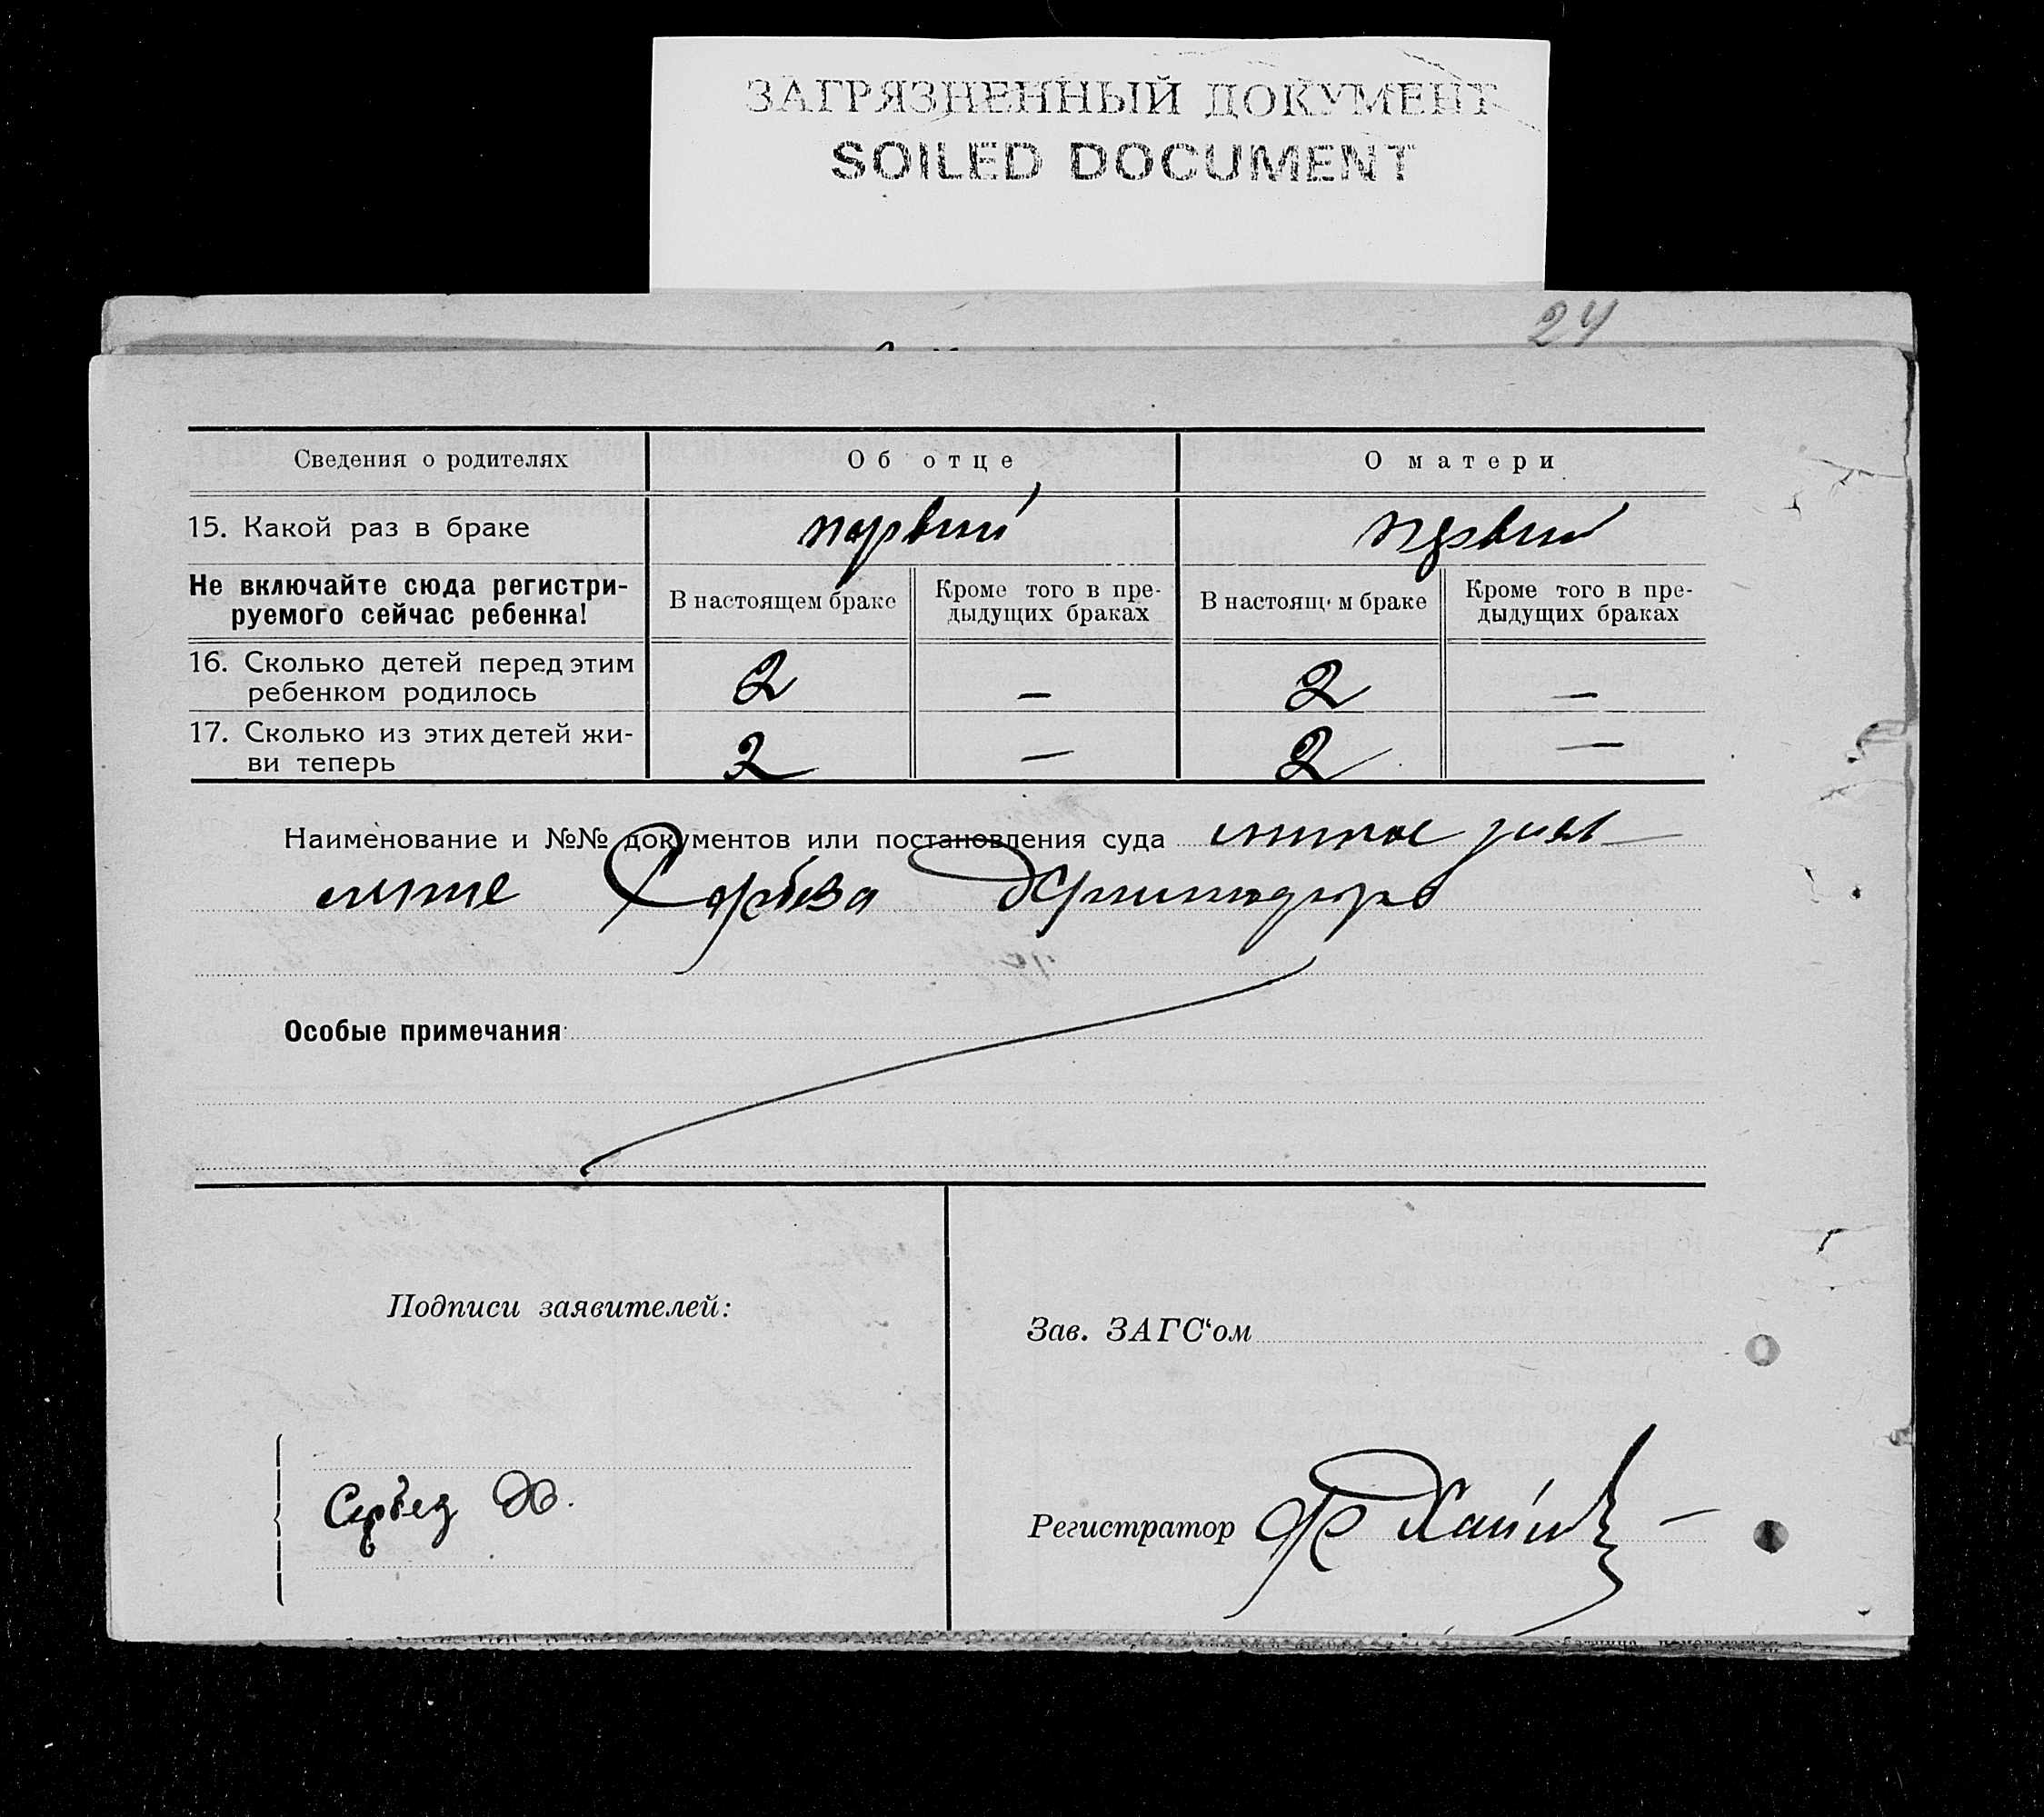 ЗАГРЯЗНЕННЫЙ ДОКУМЕНТ
SOILED DOCUMENT
24
Сведения о родителях Об отце О матери
15. Какой раз в браке первый первый
Не включайте сюда регистри-
руемого сейчас ребенка!
В настоящем браке
Кроме того в пре-
дыдущих браках
В настоящ м браке
Кроме того в пре-
дыдущих браках
16. Сколько детей перед этим
ребенком родилось
2 — 2 —
17. Сколько из этих детей жи-
ви теперь
2 — 2 —
Наименование и №№ документов или постановления суда личное заяв-
ление
Особые примечания
Подписи заявителей:
Зав. ЗАГС‘ом
Регистратор